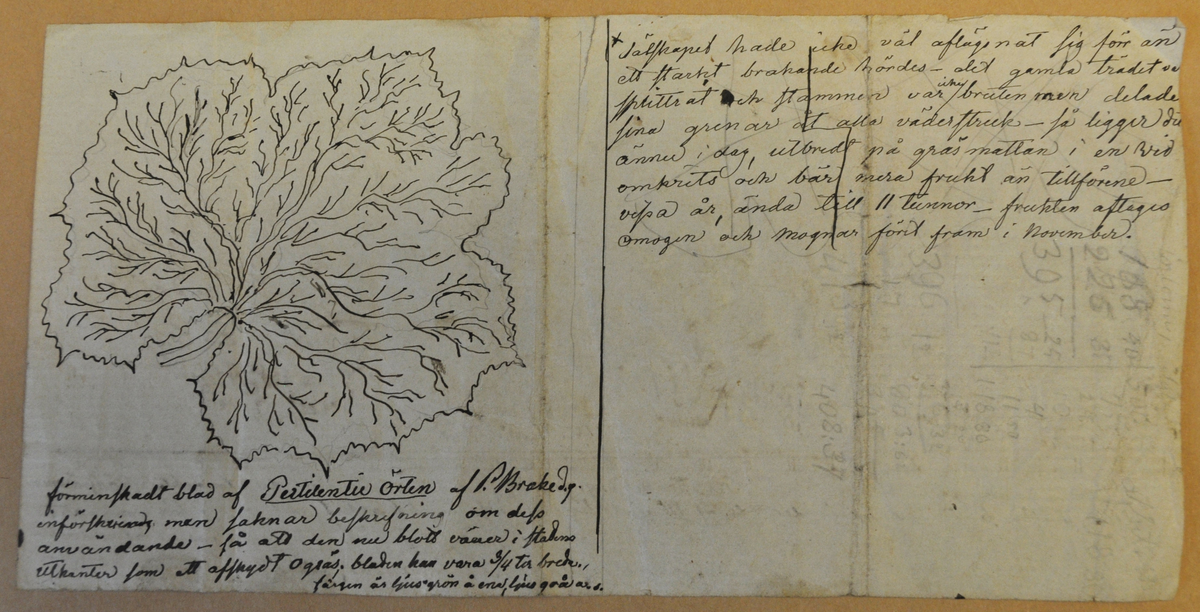 förminskadt blad af Pestilentie Örten af P. Brake d.y.
införskrivna, men saknar beskrifning om dess
användande – så att den nu blott växer i stadens
utkanter som ett afskydt Ogräs, bladen kan vara 3/4 ter breda,,
färgen är ljus-grön å ena, ljus grå a. s.
+ Sälskapet hade icke väl aflägsnat sig för än
ett starkt brakande hördes – det gamla trädet va
splittrat och stammen var icke bruten men delade
sina grenar åt alla väderstreck – så ligger du
ännu i dag, utbredt på gräsmattan i en vid
omkrits och bär mera frukt än tillförene –
vissa år, ända till 11 tunnor – frukten aftages
omogen och mognar förit fram i November.
408:37